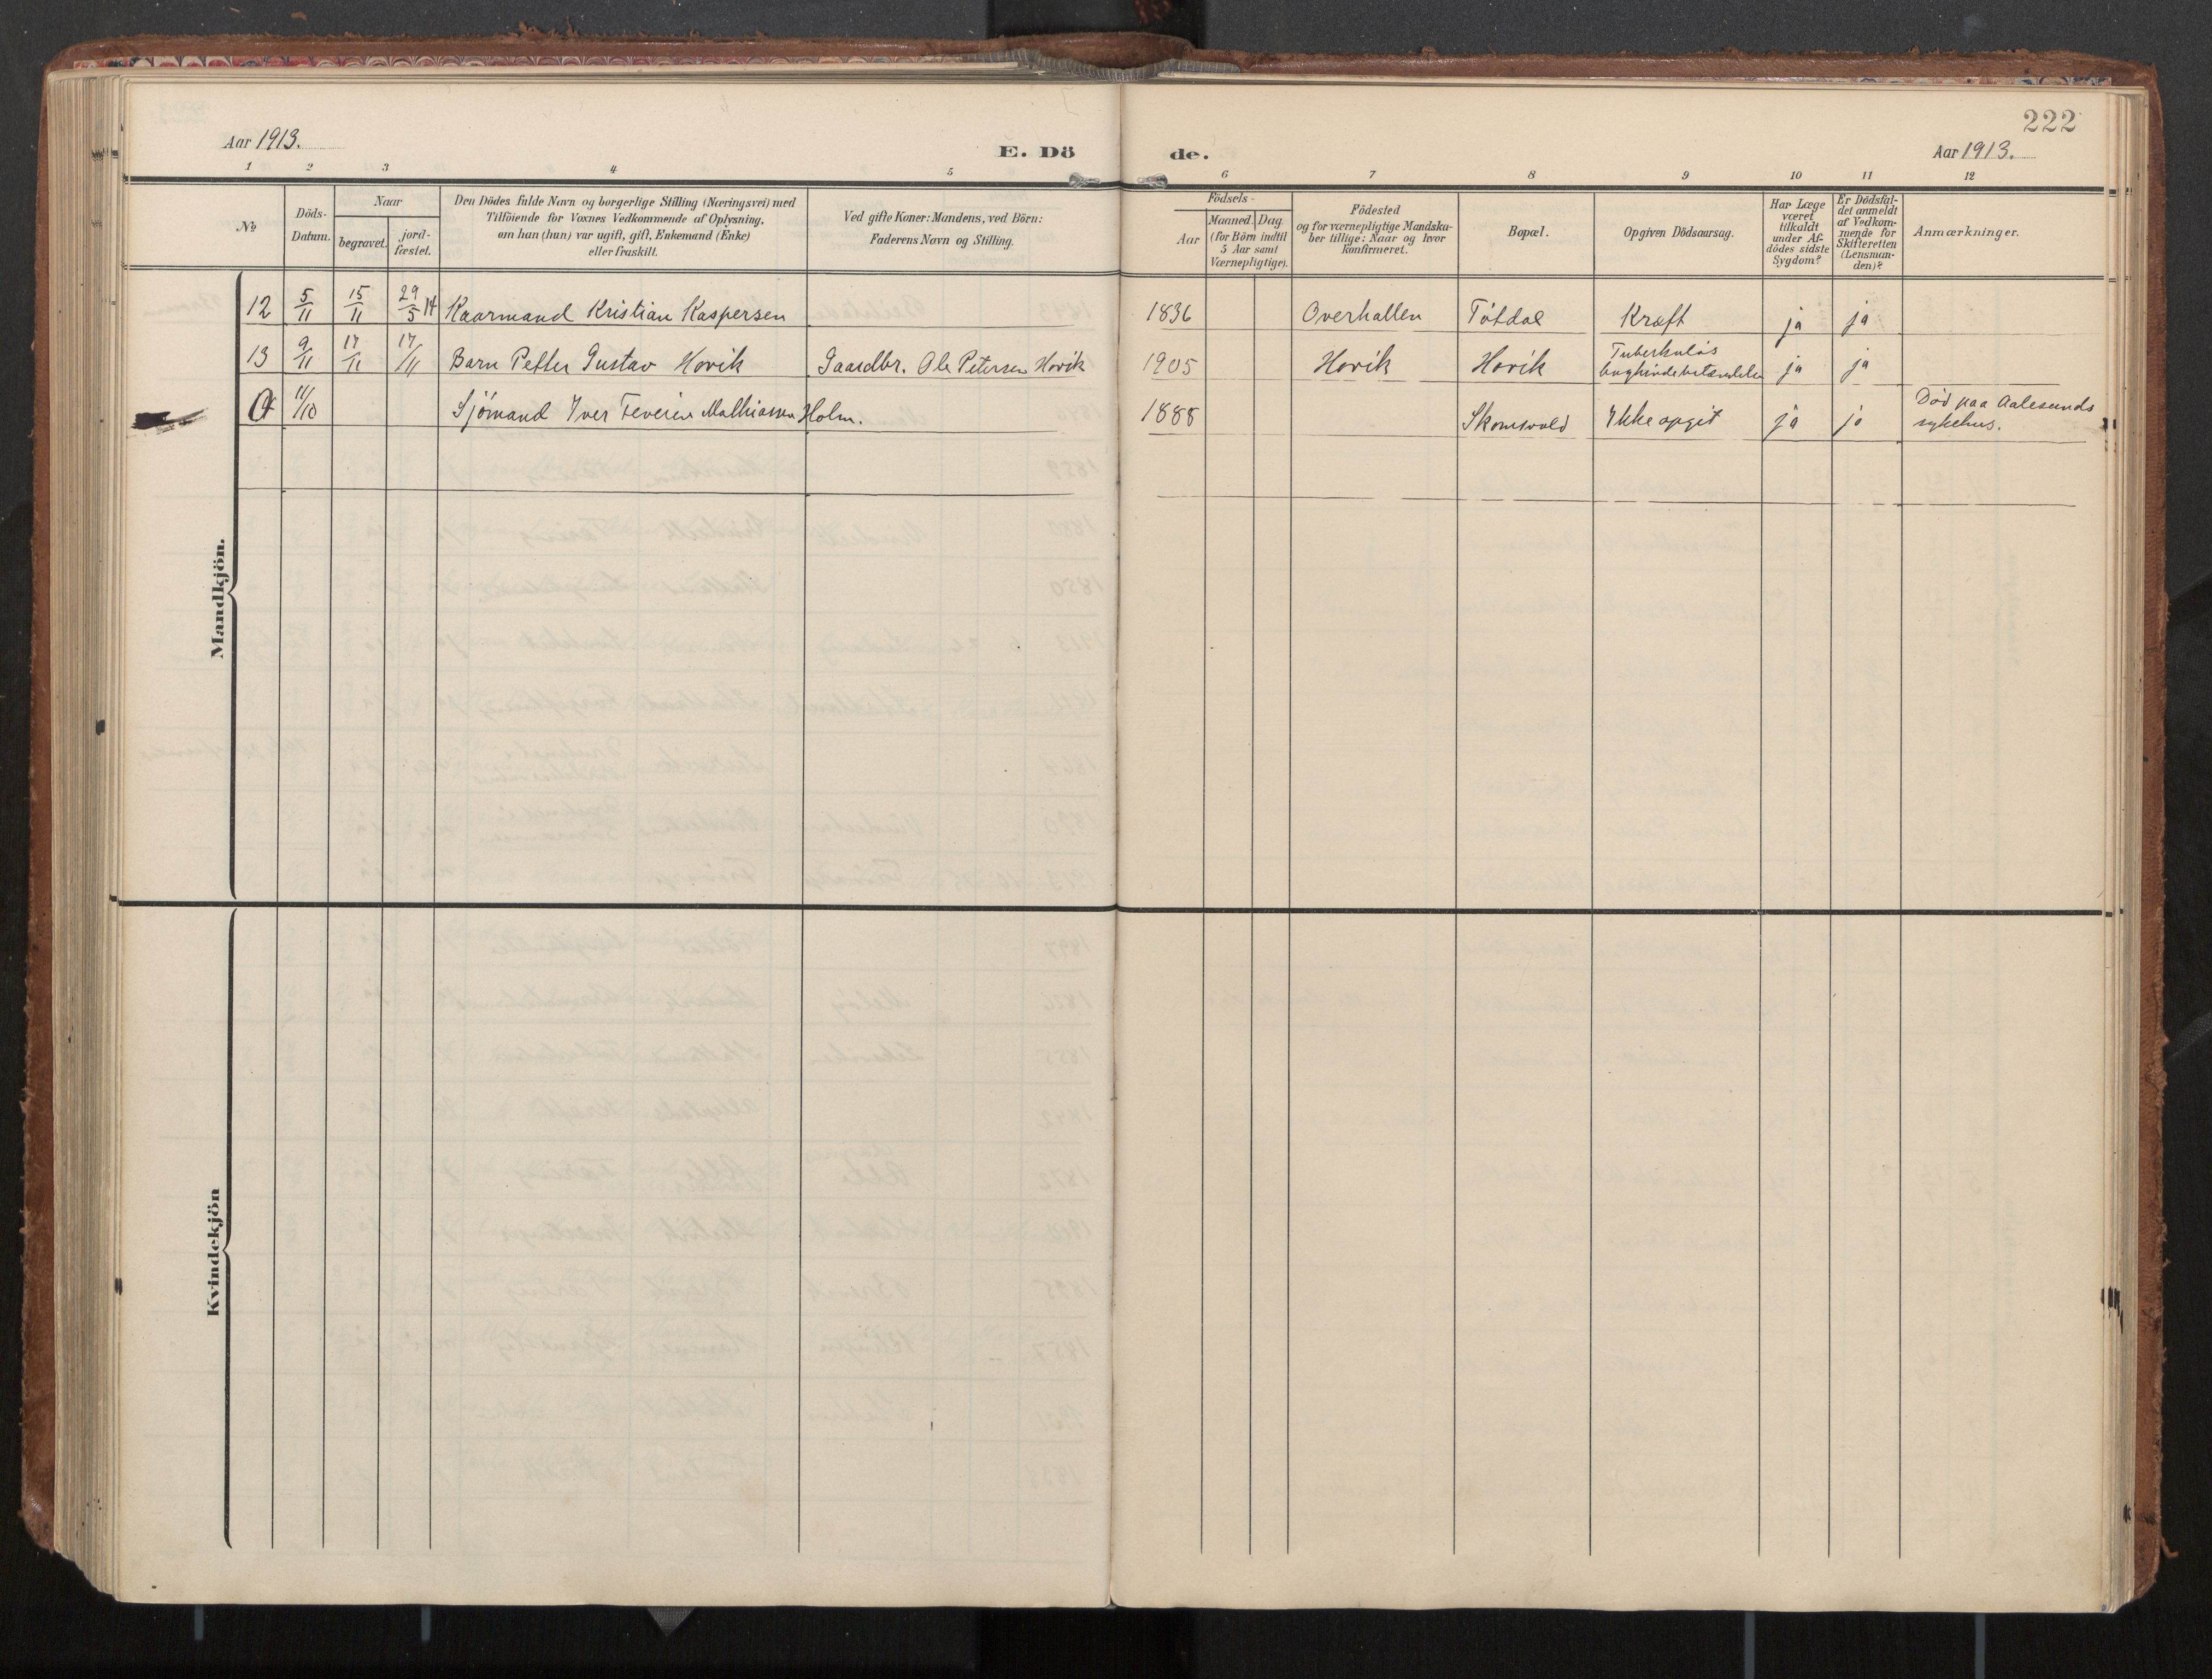 222
Aar 1913.
E. Dö de.
Aar 1913.
1 2 3 4 5 6 7 8 9 10 11 12
№
Döds-
Datum.
Naar
begravet.
jord-
fæstet.
Den Dödes fulde Navn og borgerlige Stilling (Næringsvei) med
Tilföiende for Voxnes Vedkommende af Oplysning,
om han (hun) var ugift, gift, Enkemand (Enke)
eller fraskilt.
Ved gifte Koner: Mandens, ved Börn:
Faderens Navn og Stilling.
Födsels-
Aar
Maaned. Dag.
(for Börn indtil
5 Aar samt
Værnepligtige).
Födested
og for værnepligtige Mandska-
ber tillige: Naar og hvor
konfirmeret.
Bopæl.
Opgiven Dödsaarsag.
Har Læge
været
tilkaldt
under Af-
dödes sidste
Sygdom?
Er Dödsfal-
det anmeldt
af Vedkom-
mende for
Skifteretten
(Lensman-
den)?
Anmærkninger.
Mandkjön.
12 5/11 15/11 29/5 14 Kaarmand Kristian Kaspersen 1836 Overhallen Tötdal Kræft ja ja
13 9/11 17/11 17/11 Barn Petter Gustav Hovik Gaardbr. Ole Petersen Hovik 1905 Hovik Hovik Tuberkuløs ja ja
11/10 Sjömand Iver Mathiassen Holm. 1888 Ikke opgit ja ja Død paa Aalesunds
sykehus.
Kvindekjön